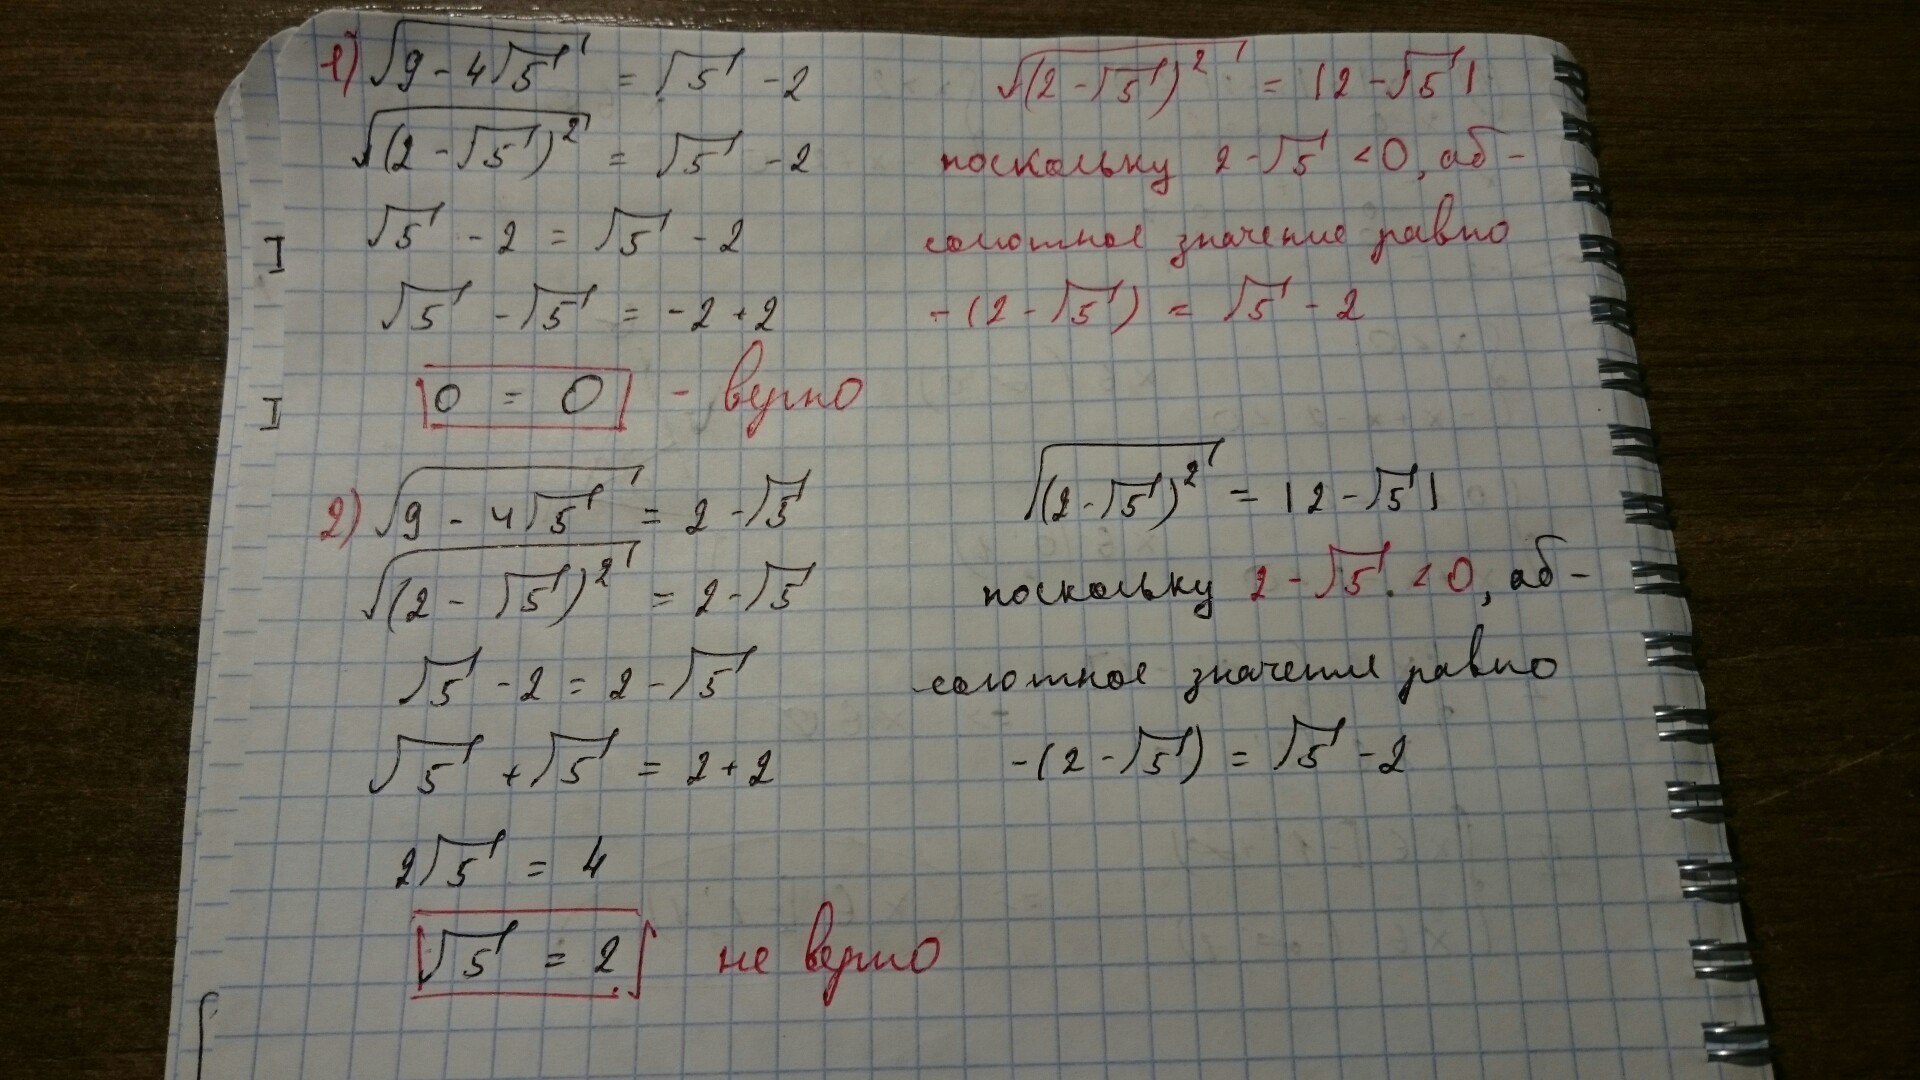 1) √(9 - 4√5) = √5 - 2
√((2 - √5)²) = √5 - 2
√5 - 2 = √5 - 2
√5 - √5 = -2 + 2
0 = 0 - верно
√((2 - √5)²) = |2 - √5|
поскольку 2 - √5 < 0, аб-
солютное значение равно
-(2 - √5) = √5 - 2
2) √(9 - 4√5) = 2 - √5
√((2 - √5)²) = 2 - √5
√5 - 2 = 2 - √5
√5 + √5 = 2 + 2
2√5 = 4
√5 = 2 не верно
√((2 - √5)²) = |2 - √5|
поскольку 2 - √5 < 0, аб-
солютное значение равно
-(2 - √5) = √5 - 2